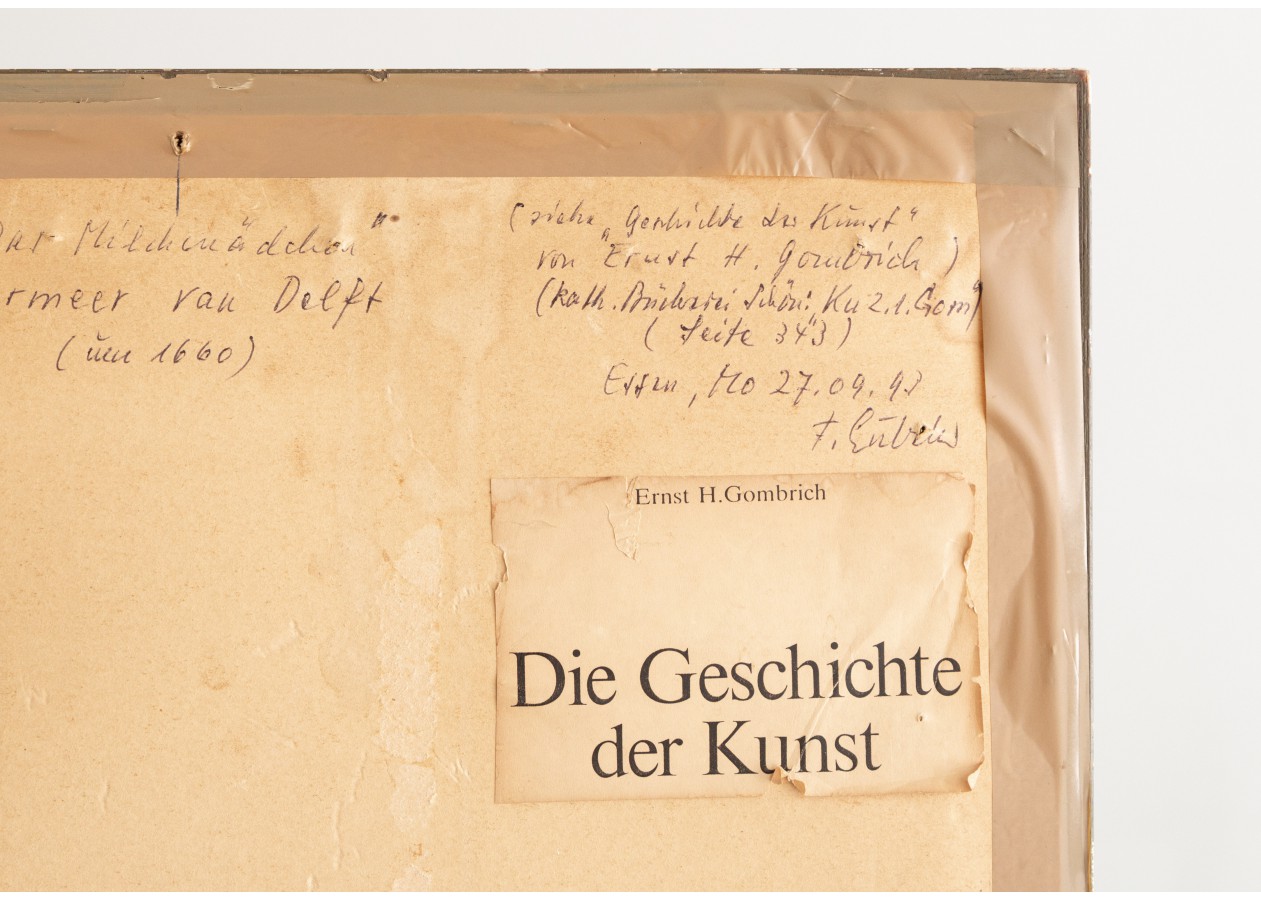 Milchmädchen"
rmeer van Delft
(um 1660)
(siehe „Geschichte der Kunst"
von Ernst H. Gombrich)
(kath. Bücherei Schön: Ku 2.1. Gom)
(Seite 343)
Essen, Mo 27.09.93
F.
Ernst H.Gombrich
Die Geschichte
der Kunst